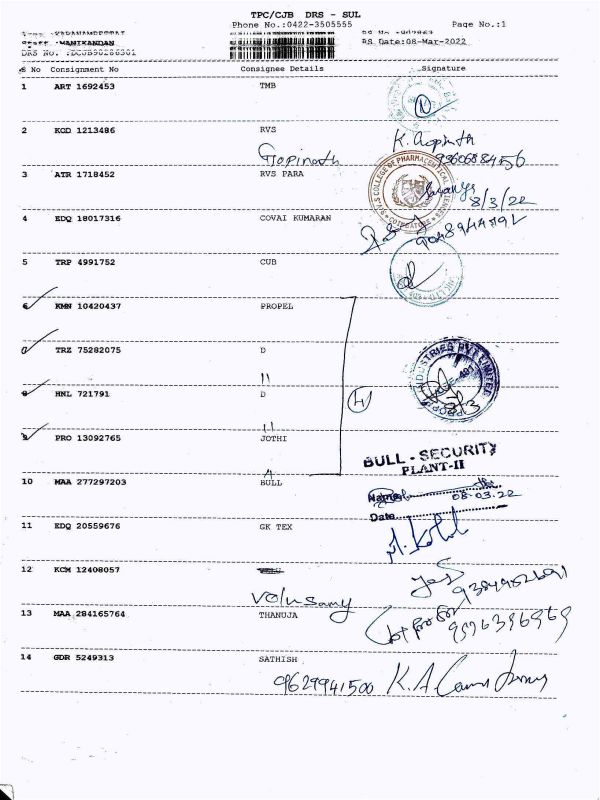 TPC/CJB DRS - SUL
Phone No.:0422-3505555 Page No.:1
Staff :MANIKANDAN
DRS No. :DCJB90286301 RS Date:08-Mar-2022
S No Consignment No Consignee Details Signature
1 ART 1692453 TMB
2 KGD 1213486 RVS
Gopinath K. Gopinath
9360688456
3 ATR 1718452 RVS PARA
COLLEGE OF PHARMACEUTICAL SCIENCES
COIMBATORE
8/3/22
4 EDQ 18017316 COVAI KUMARAN
5 TRP 4991752 CUB
6 KMN 10420437 PROPEL
7 TRZ 75282075 D
INDUSTRIES PVT LIMITED
8 HNL 721791 D
4
9 PRO 13092765 JOTHI
BULL - SECURITY
PLANT-II
10 MAA 277297203 BULL
Name
08.03.22
Date
11 EDQ 20559676 GK TEX
12 KCM 12408057
Velusamy
13 MAA 284165764 THANUJA
14 GDR 5249313 SATHISH
9629941500